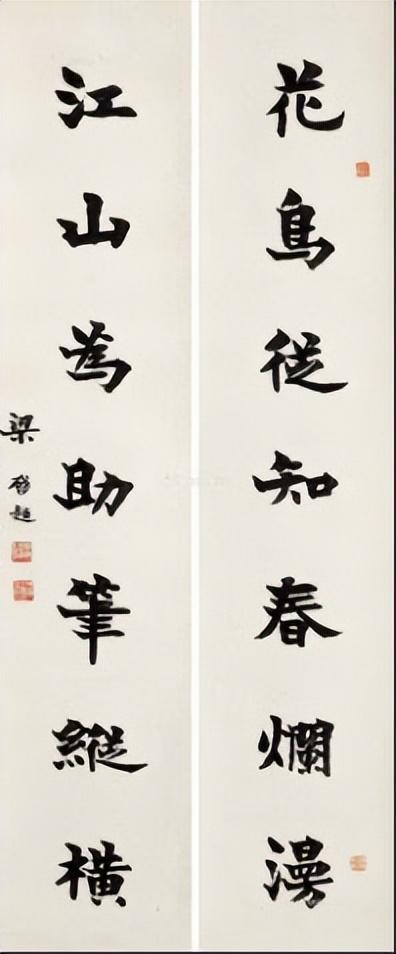 花鳥從知春爛漫
江山為助筆縱橫
梁啓超